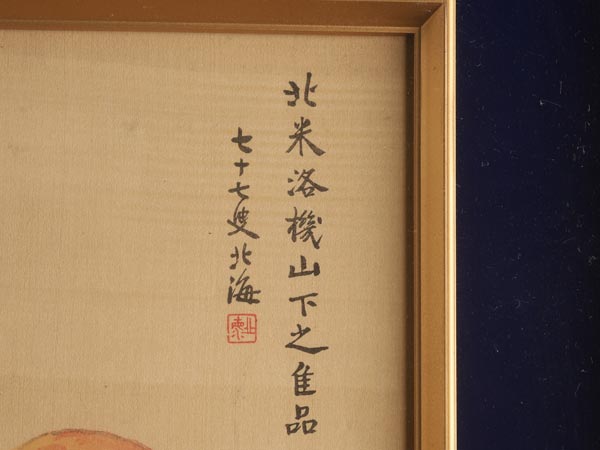 北米洛機山下之佳品
七十七叟北海